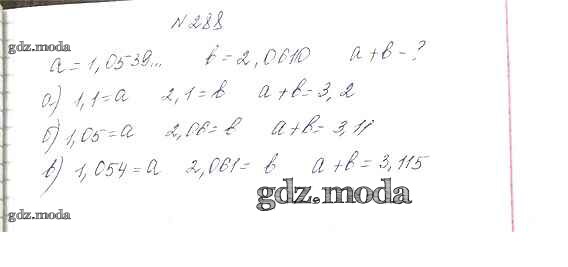 № 288
gdz.moda
a = 1,0539... b = 2,0610 a + b - ?
а) 1,1 = a 2,1 = b a + b = 3,2
б) 1,05 = a 2,06 = b a + b = 3,11
в) 1,054 = a 2,061 = b a + b = 3,115
gdz.moda
gdz.moda